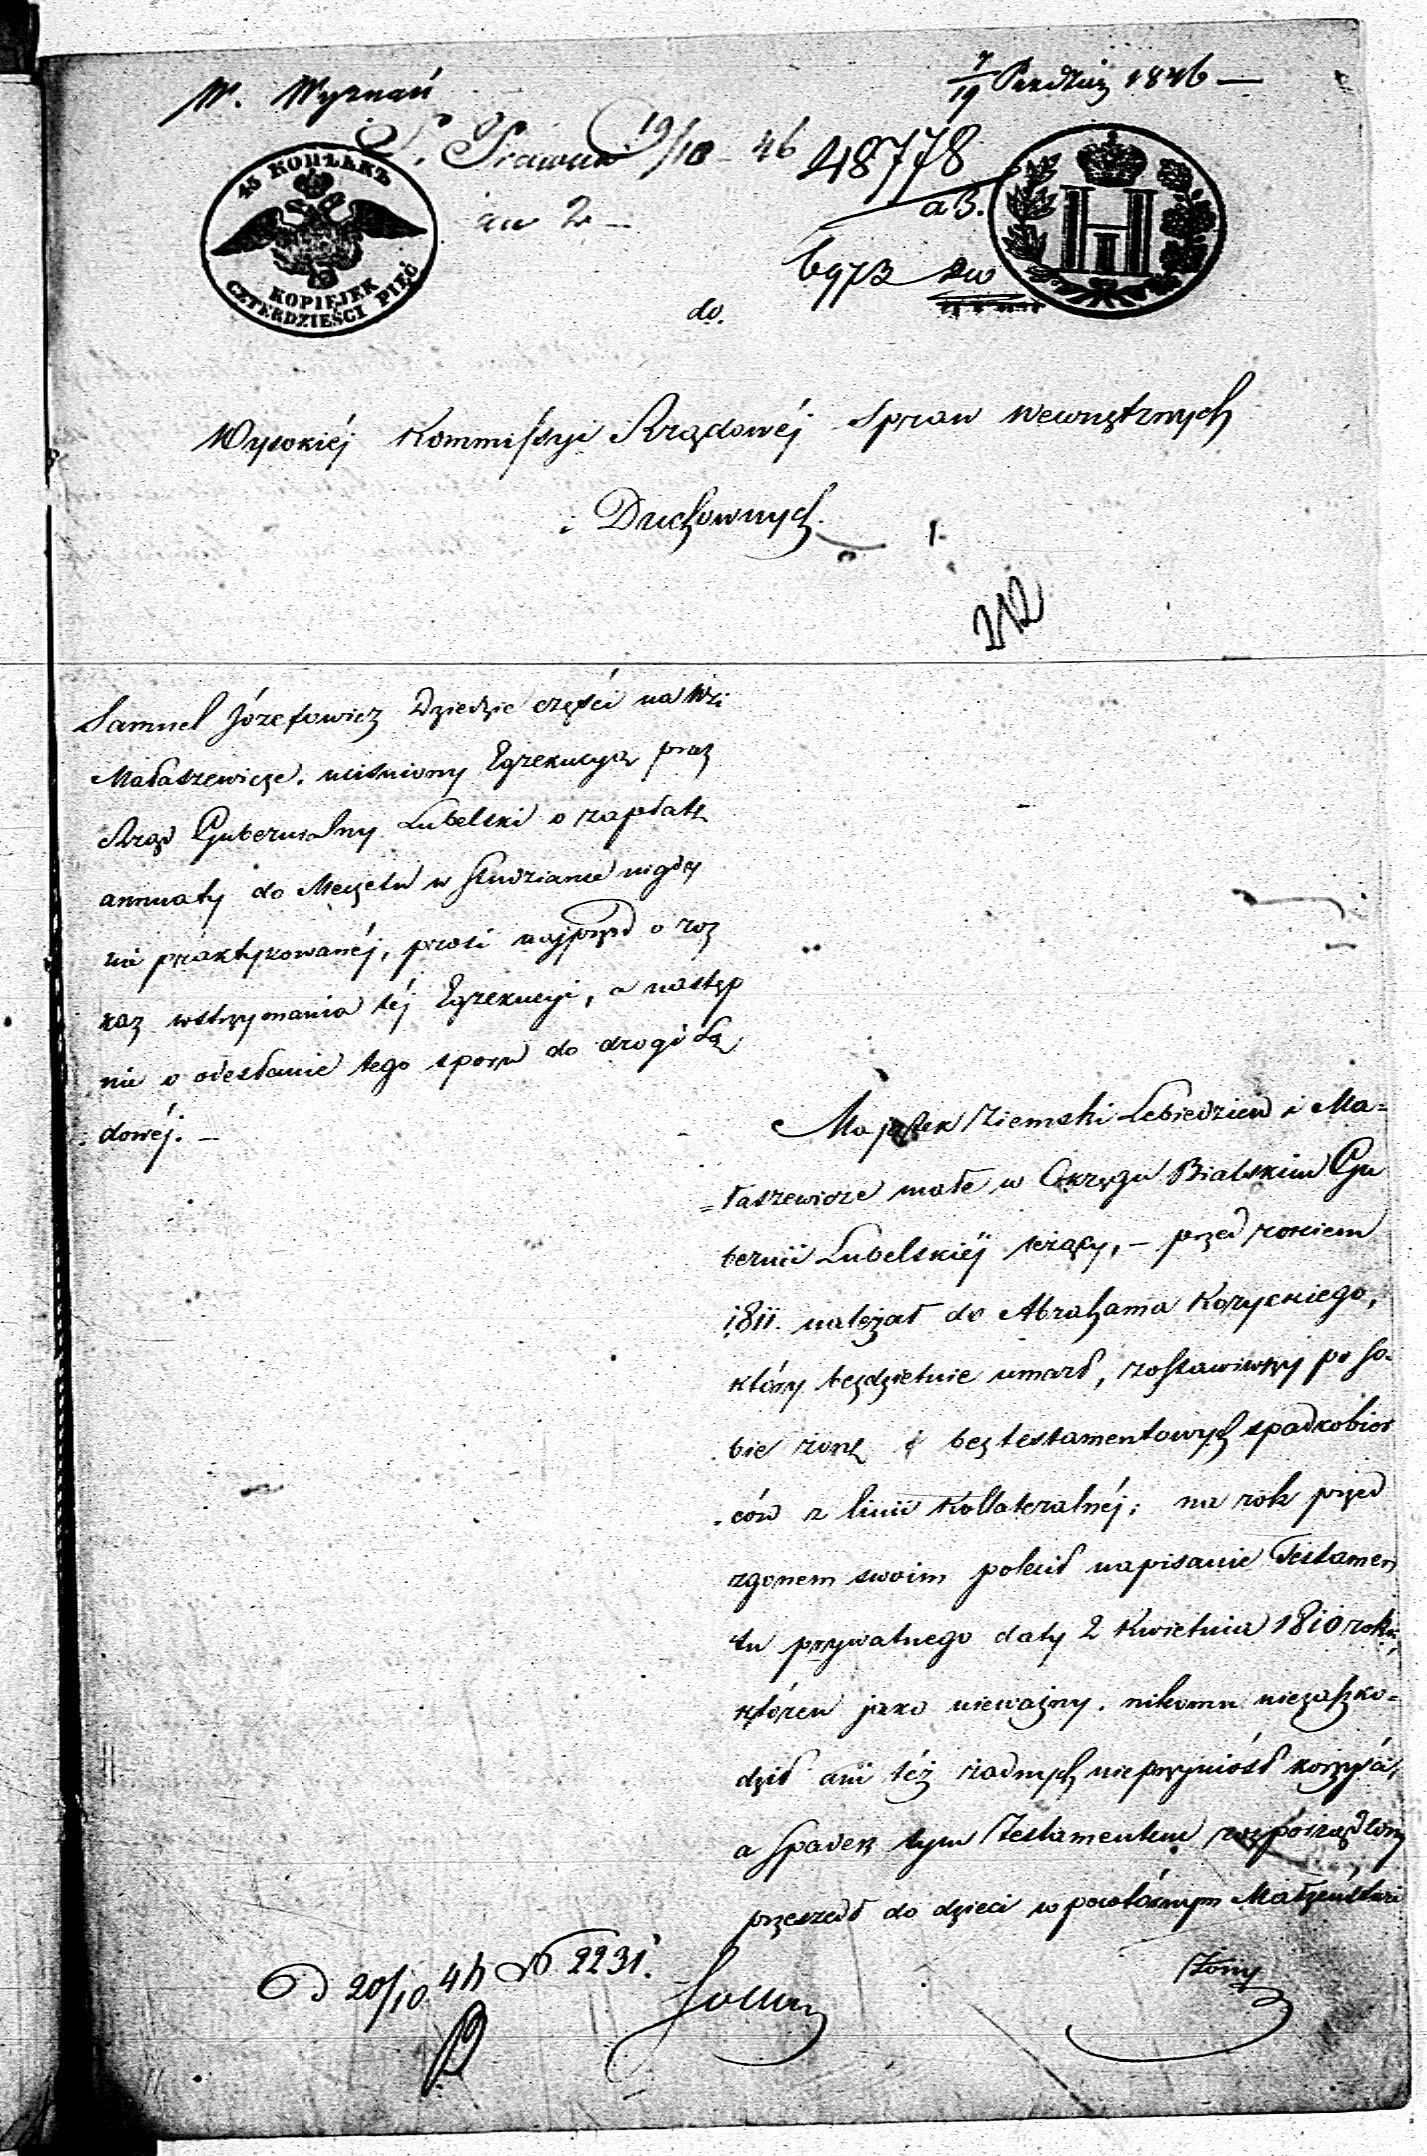 W. Wyznań
7/19 Paździer 1846
S. Prawna 19/10 46
48778
45 КОПѢЕКЪ
KOPIEJEK
CZTERDZIEŚCI PIĘĆ
2
do
Wysokiéj Kommissyi Rządowéj Spraw Wewnętrznych
i Duchownych.
212
Samuel Józefowicz Dziedzic części na Wsi
Małaszewicze. uciśniony Egzekucyą przez
Rząd Gubernialny Lubelski o zapłatę
annuaty do Meczetu w Studziance nigdy
nie praktykowanéj, prosi najprzód o roz
kaz wstrzymania téj Egzekucyi, a następ
nie o odesłanie tego sporu do drogi Są
dowéj.
Majątek Ziemski Lebiedziew i Ma=
=łaszewicze małe w Okręgu Bialskim Gu
bernii Lubelskiéj leżący, – przed rokiem
1811. należał do Abrahama Koryckiego,
który bezdzietnie umarł, zostawiwszy po so
bie żonę i beztestamentowych spadkobior
ców z linii Kollateralnéj; na rok przed
zgonem swoim polecił napisanie Testamen
tu prywatnego daty 2 Kwietnia 1810 roku,
któren jako nieważny. nikomu niezaszko=
dził ani téż żadnych nie przyniósł korzyści,
a Spadek tym Testamentem rozporządzony
przeszedł do dzieci w powtórnym Małżeństwie
Żony
D 20/10 46 N 2231.